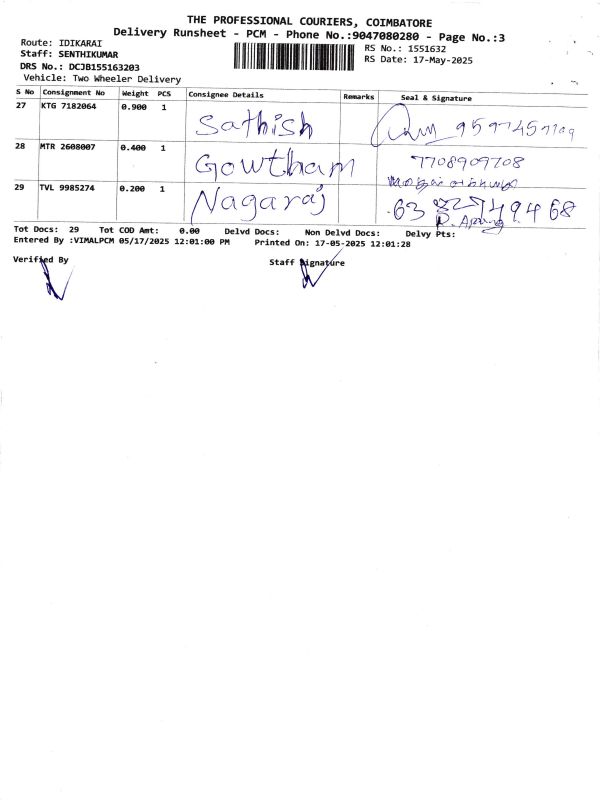 THE PROFESSIONAL COURIERS, COIMBATORE
Delivery Runsheet - PCM - Phone No.:9047080280 - Page No.:3
Route: IDIKARAI
Staff: SENTHIKUMAR
DRS No.: DCJB155163203
Vehicle: Two Wheeler Delivery
RS No.: 1551632
RS Date: 17-May-2025
S No Consignment No Weight PCS Consignee Details Remarks Seal & Signature
27 KTG 7182064 0.900 1 Sathish
28 MTR 2608007 0.400 1 Gowtham 7708909708
29 TVL 9985274 0.200 1 Nagaraj
Tot Docs: 29 Tot COD Amt: 0.00 Delvd Docs: Non Delvd Docs: Delvy Pts:
Entered By :VIMALPCM 05/17/2025 12:01:00 PM Printed On: 17-05-2025 12:01:28
Verified By Staff Signature